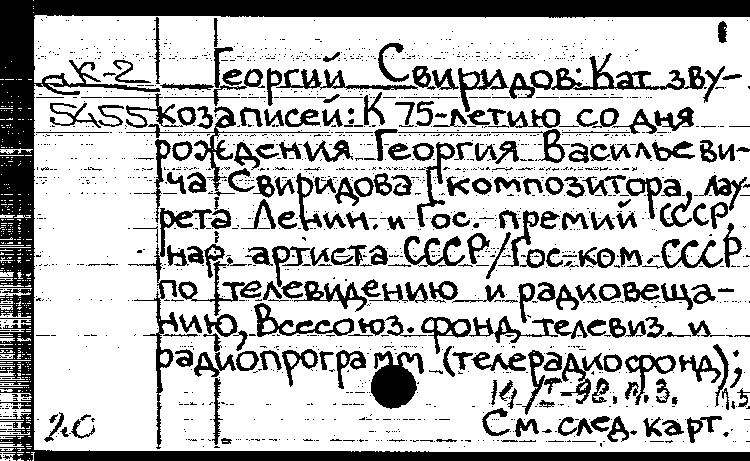 К-2 Георгий Свиридов: Кат. зву-
5455 козаписей: К 75-летию со дня
рождения Георгия Васильеви-
ча Свиридова [композитора, лау-
рета Ленин. и Гос. премий СССР,
нар. артиста СССР/Гос. ком. СССР
по телевидению и радиовеща-
нию, Всесоюз. фонд телевиз. и
радиопрограмм (телерадиофонд);
14/I-92. п.з. п.з
2.0 См. след. карт.